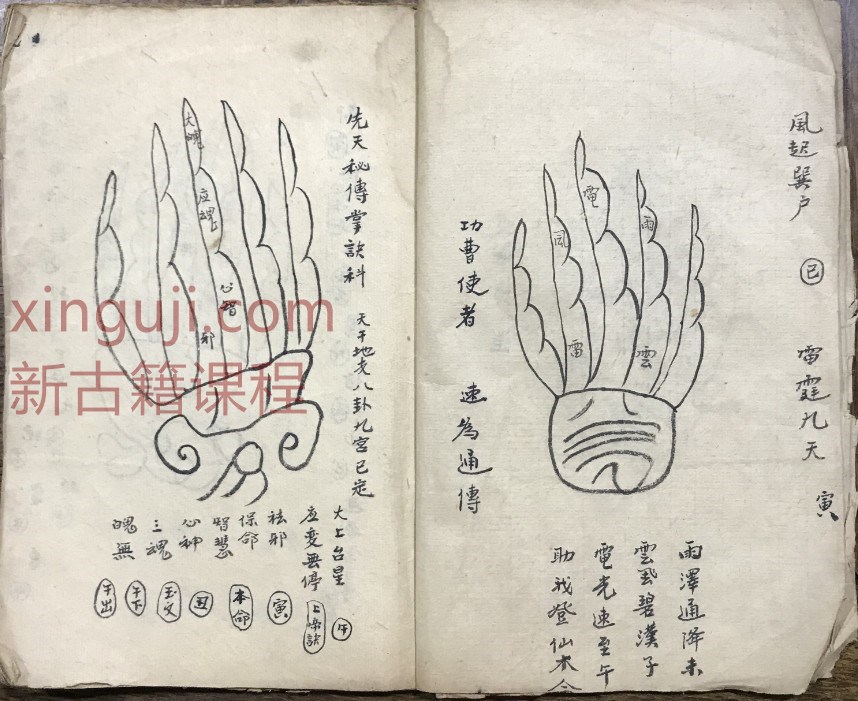 風起巽户 巳 雷霆九天 寅
雨澤通降未
雲風碧漢子
電光速至午
助我登仙本
雨
雲
電
風
雷
功曹使者 速為通傳
先天秘傳掌訣科 天干地支八卦九宮已定
应魂
心智
邪
大上台星 午
应変無停
祛邪 寅
保命 本命
智慧 丑
心神 玉文
三魂 午下
魄無 午出
xinguji.com
新古籍课程